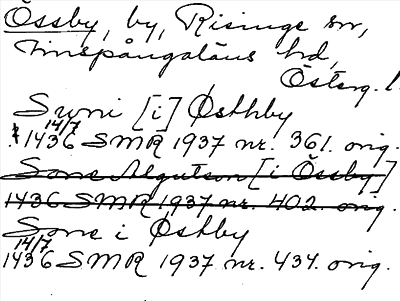 Össby, by, Risinge sn,
Finspångaläns hd,
Österg. l.
Suni [i] Østhby
14/7
1436 SMR 1937 nr. 361. orig.
Sone Algutson [i Össby]
1436 SMR 1937 nr. 402. orig.
Sone i Østby
14/7
1436 SMR 1937 nr. 434. orig.